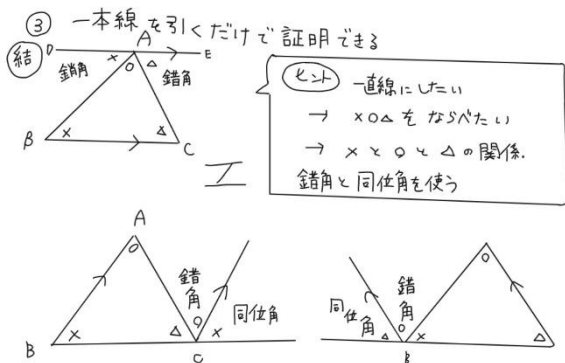 ③ 一本線を引くだけで証明できる
結 D A E
× ○ △
錯角 錯角
B × △ C
ヒント 一直線にしたい
→ ×○△をならべたい
→ ×と○と△の関係.
錯角と同位角を使う
A
○
錯角 同位角
B × △ ○ ×
C
○
錯角
同位角
△ ○ × △
B